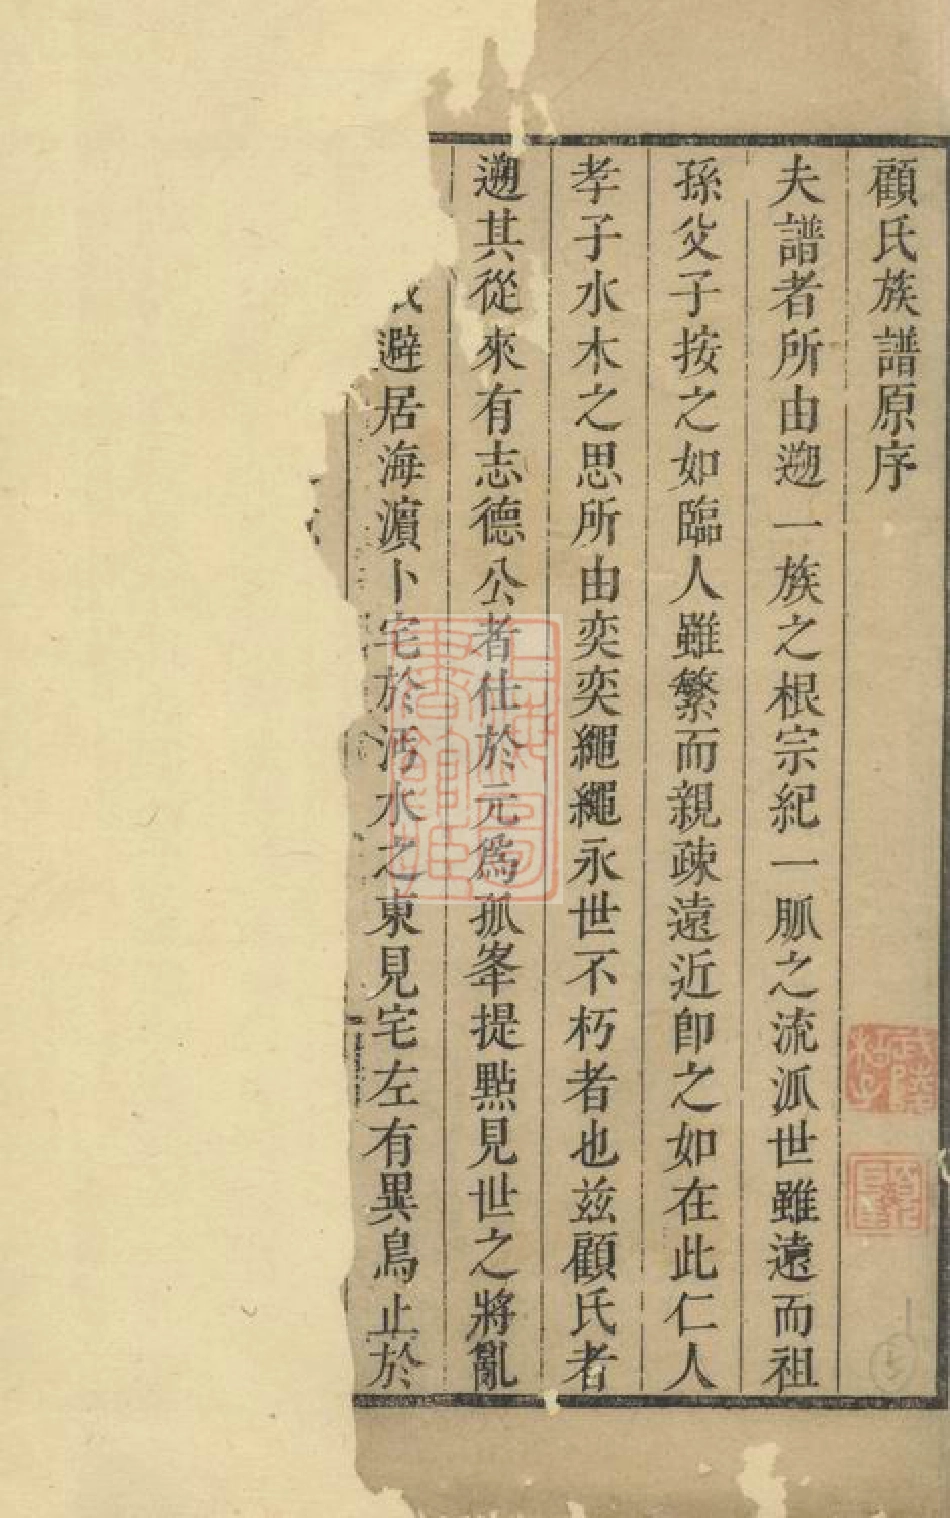 顧氏族譜原序
夫譜者所由遡一族之根宗紀一脈之流派世雖遠而祖
孫父子按之如臨人雖繁而親疎遠近卽之如在此仁人
孝子水木之思所由奕奕繩繩永世不朽者也玆顧氏者
遡其從來有志德公者仕於元爲孤峯提點見世之將亂
避居海濵卜宅於沔水之東見宅左有異鳥止於